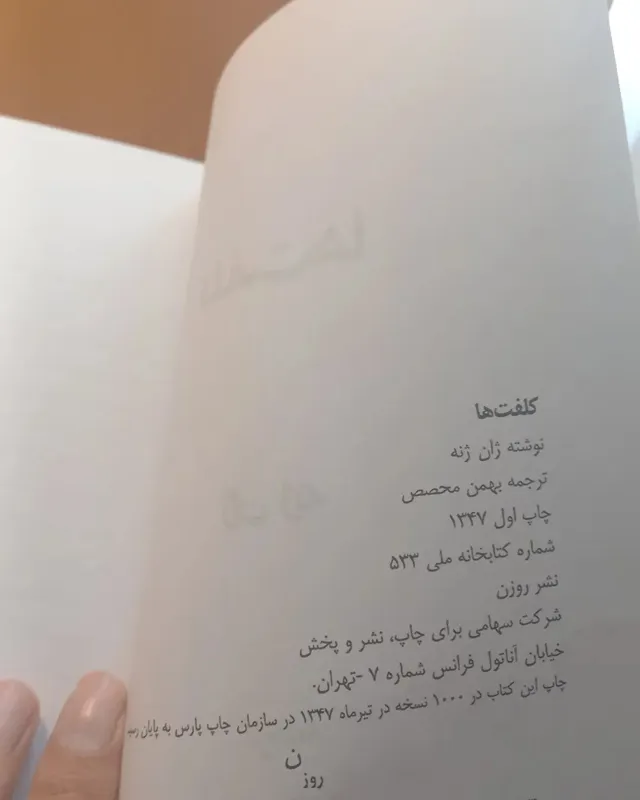 کلفت‌ها
نوشته ژان ژنه
ترجمه بهمن محصص
چاپ اول ۱۳۴۷
شماره کتابخانه ملی ۵۳۳
نشر روزن
شرکت سهامی برای چاپ، نشر و پخش
خیابان آناتول فرانس شماره ۷ -تهران.
چاپ این کتاب در ۱۰۰۰ نسخه در تیرماه ۱۳۴۷ در سازمان چاپ پارس به پایان
روزن